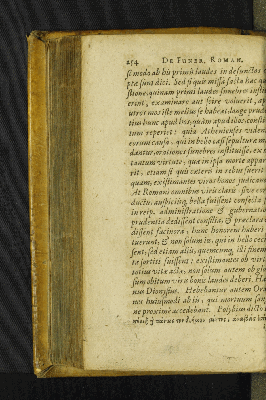 254 DE FUNER. ROMAN.
si modo ab his primis laudes in defunctos
ptæ sunt dici. Sed si quis missa facta hac qu
stione, quinam primi laudes funebres insti
erint, examinare aut scire voluerit, a
utros mos ille melius se habeat, longe prud
tius hunc apud hos, quam apud illos, constit
tum reperit: quia Athenienses viden
eorum causa, qui in bello cæsi sepulturæ m
dantur, orationes funebres instituisse: ex
tantum virtute, quæ in ipsa morte appar
rit, etiam si quis cætera in rebus fuerit
quam, existimantes viros bonos judicand
At Romani omnibus viris claris: sive
ductu, auspiciisq; bella fuissent confecta
in rep. administratione & gubernatio
prudentia dedissent consilia, & præclara
didissent facinora, hunc honorem haberi
tuerunt, & non solum iis, qui in bello ceci
sent, sed etiam aliis, quemcunq; illi finem
tæ sortiti fuissent: existimantes ob virt
totius vitæ actæ, non solum autem ob glo
sum obitum viris bonis laudes deberi. Hæ
nus Dionysius. Hebræi autem
nus huiusmodi ab iis, qui mortuum
ne proxime accedebant. Polybii dicto